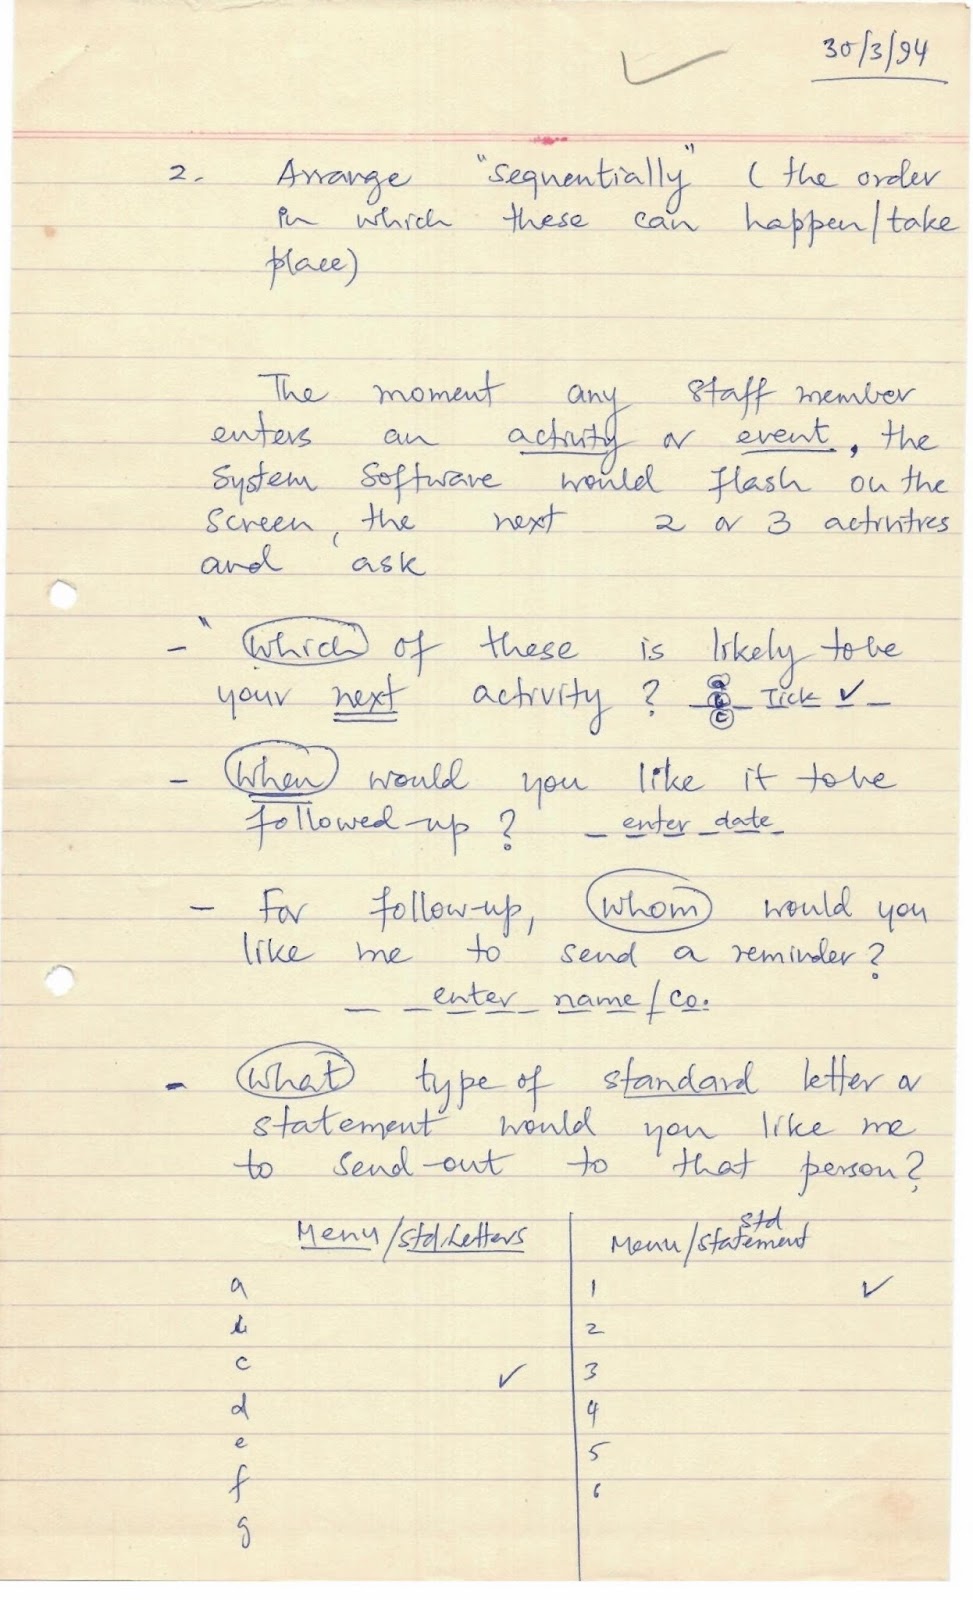 30/3/94
2. Arrange "sequentially" (the order
in which these can happen/take
place)
The moment any staff member
enters an activity or event, the
System Software would flash on the
screen, the next 2 or 3 activities
and ask
- " Which of these is likely to be
your next activity? a b c Tick ✓
- When would you like it to be
followed-up? _ enter date
- For follow-up, whom would you
like me to send a reminder?
_ _ enter name/Co.
- What type of standard letter or
statement would you like me
to send-out to that person?
Menu/Std. Letters Menu/Std Statement
a 1 ✓
b 2
c ✓ 3
d 4
e 5
f 6
g